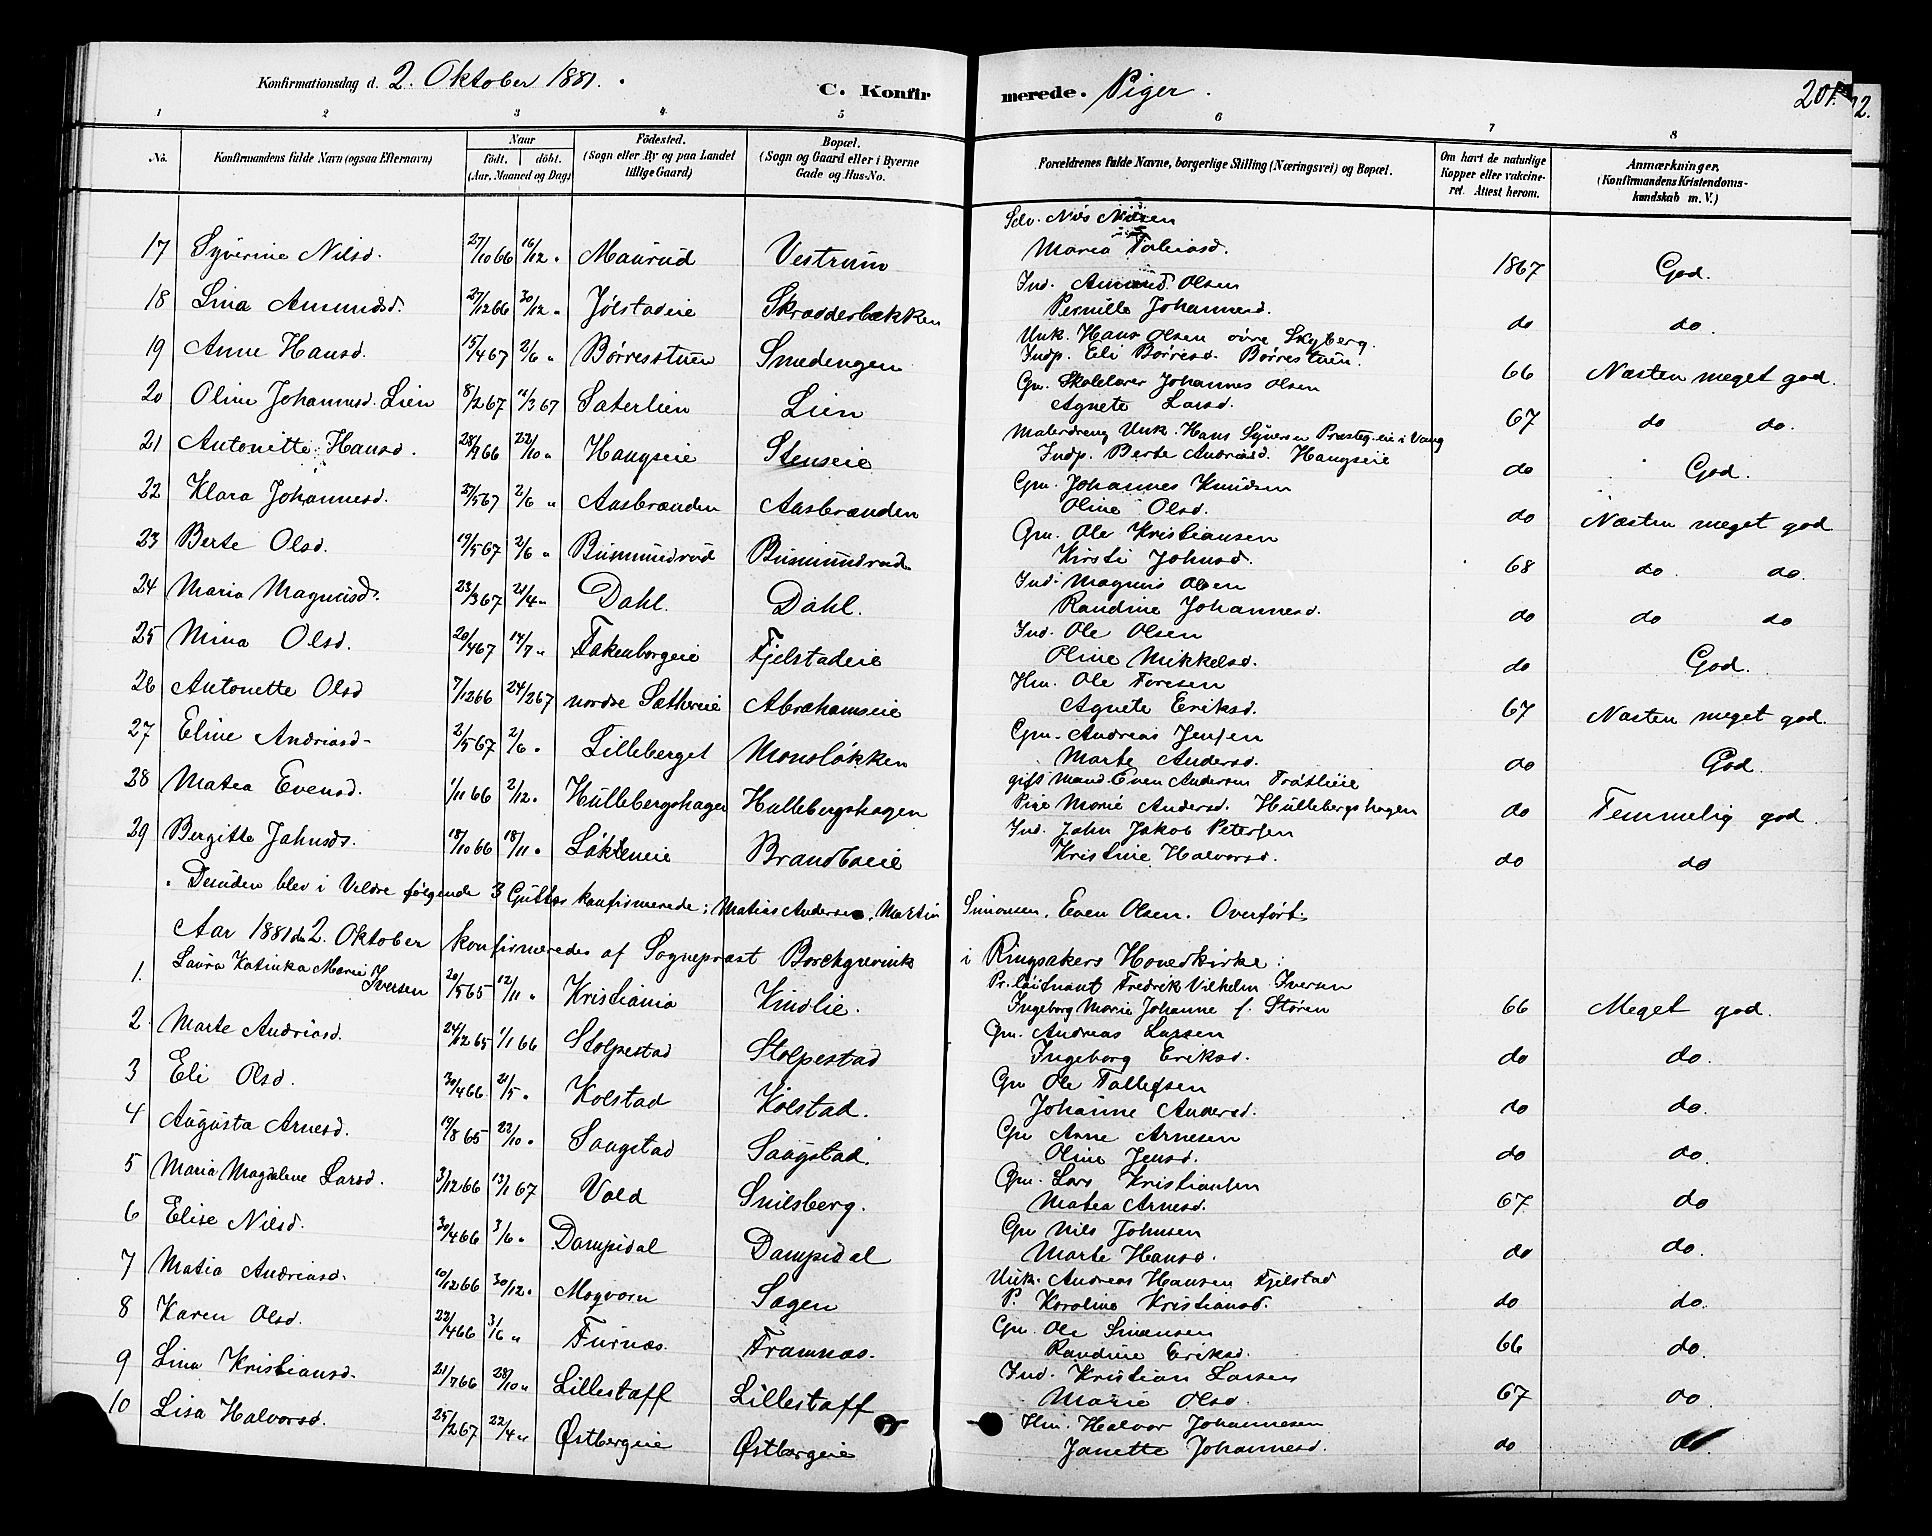 Konfirmationsdag d. 2. Oktober 1881. C. Konfirmerede. Piger. 201.
1 2 3 4 5 6 7 8
No. Konfirmandens fulde Navn (ogsaa Efternavn) Naar født. døbt. (Aar, Maaned og Dag) Fødested. (Sogn eller By og paa Landet tillige Gaard) Bopæl. (Sogn og Gaard eller i Byerne Gade og Hus-No. Forældrenes fulde Navne, borgerlige Stilling (Næringsvei) og Bopæl. Om havt de naturlige Kopper eller vakcineret. Attest herom. Anmærkninger, (Konfirmandens Kristendomskundskab m. V.)
17 Syverine Nilsd. 27/10 66 16/12 " Maurud Vestrum Selv. Nils Nilsen
Maria Tobiasd. 1867 God.
18 Lina Amundsd. 27/12 66 30/12 " Jølstadeie Skrædderbækken Ind. Amund Olsen
Pernille Johannesd. do do.
19 Anne Hansd. 15/4 67 2/6 " Børresstuen Smedengen Unk. Hans Olsen øvre Skyberg.
Indp. Eli Børresd. Børrestuen. 66 Næsten meget god.
20 Oline Johannesd. Lien 8/2 67 12/3 67 Saterlien Lien Gm. Skolelærer Johannes Olsen
Agnete Larsd. 67 do do.
21 Antonitte Hansd. 28/9 66 22/10 " Haugseie Stenseie Malerdreng Unk. Hans Syversen Præsteg.eie i Vang
Indp. Berte Andreasd. Haugseie do God.
22 Klara Johannesd. 27/5 67 2/6 " Aasbrænden Aasbrænden Gm. Johannes Knudsen
Oline Olsd. do Næsten meget god
23 Berte Olsd. 19/5 67 2/6 " Bumundrud Bumundrud Gm. Ole Kristiansen
Kirsti Johnsd. 68 do do.
24 Maria Magnusd. 23/3 67 21/4 " Dahl. Dahl. Ind. Magnus Olsen
Randine Johannesd. do do do
25 Mina Olsd. 20/4 67 14/7 " Fakenborgeie Fjelstadeie Ind. Ole Olsen
Oline Mikkelsd. do God.
26 Antonette Olsd 7/12 66 24/2 67 nordre Sæthereie Abrahamseie Hm. Ole Toresen
Agnete Eriksd. 67 Næsten meget god.
27 Eline Andriasd. 2/5 67 2/6 " Lilleberget Monsløkken Gm. Andreas Jensen
Marte Andersd. do God.
28 Matea Evensd. 1/11 66 2/12 " Hullebergshagen Hullebergshagen gift Mand Even Andersen Trøstleie
Pige Marie Andersd. Hullebergshagen do Temmelig god.
29 Bergitte Jahnsd. 18/10 66 18/11 " Løkkeneie Brandbæeie Ind. Jahn Jakob Petersen
Kristine Halvorsd. do do
Desuden blev i Veldre følgende 3 Gutter konfirmerede: Matias Andersen, Martin Simonsen, Even Olsen. Overført.
Aar 1881 d. 2. Oktober konfirmeredes af Sogneprest Borchgrevink i Ringsakers Hovedkirke:
1. Laura Katinka Marie Iversen 20/5 65 12/11 " Kristiania Kindlie. Pr.løitnant Fredrek Vilhelm Iversen
Ingeborg Marie Johanne f. Støren 66 Meget god.
2 Marte Andriasd. 24/12 65 1/1 66 Stolpestad Stolpestad Gm. Andreas Larsen
Ingeborg Eriksd. do do.
3 Eli Olsd. 30/4 66 21/5 " Kolstad Kolstad. Gm Ole Tollefsen
Johanne Andersd. do do.
4 Augusta Arnesd. 19/8 65 22/10 " Saugstad Saugstad. Gm Arne Arnesen
Oline Jensd. do do.
5 Maria Magdalene Larsd. 3/12 66 13/1 67 Vold Snilsberg. Gm. Lars Kristiansen
Matea Arnesd. 67. do
6 Elise Nilsd. 30/4 66 3/6 " Dampidal Dampidal Gm Nils Johnsen
Marte Hansd. do do.
7 Matia Andreasd. 10/12 66 30/12 " Mogvorn Sagen Unk. Andreas Hansen Fjelstad
P. Karoline Kristiansd. do do.
8 Karen Olsd. 22/4 66 3/6 " Furnæs. Framnæs. Gm. Ole Simensen
Randine Eriksd. 66 do.
9 Lina Kristiansd. 21/7 66 28/10 " Lillestaff Lillestaff Ind. Kristian Larsen
Marie Olsd. 67 do.
10 Lisa Halvorsd. 25/2 67 22/4 " Østbergeie Østbergeie Hm. Halvor Johannesen
Janette Johannesd. do do